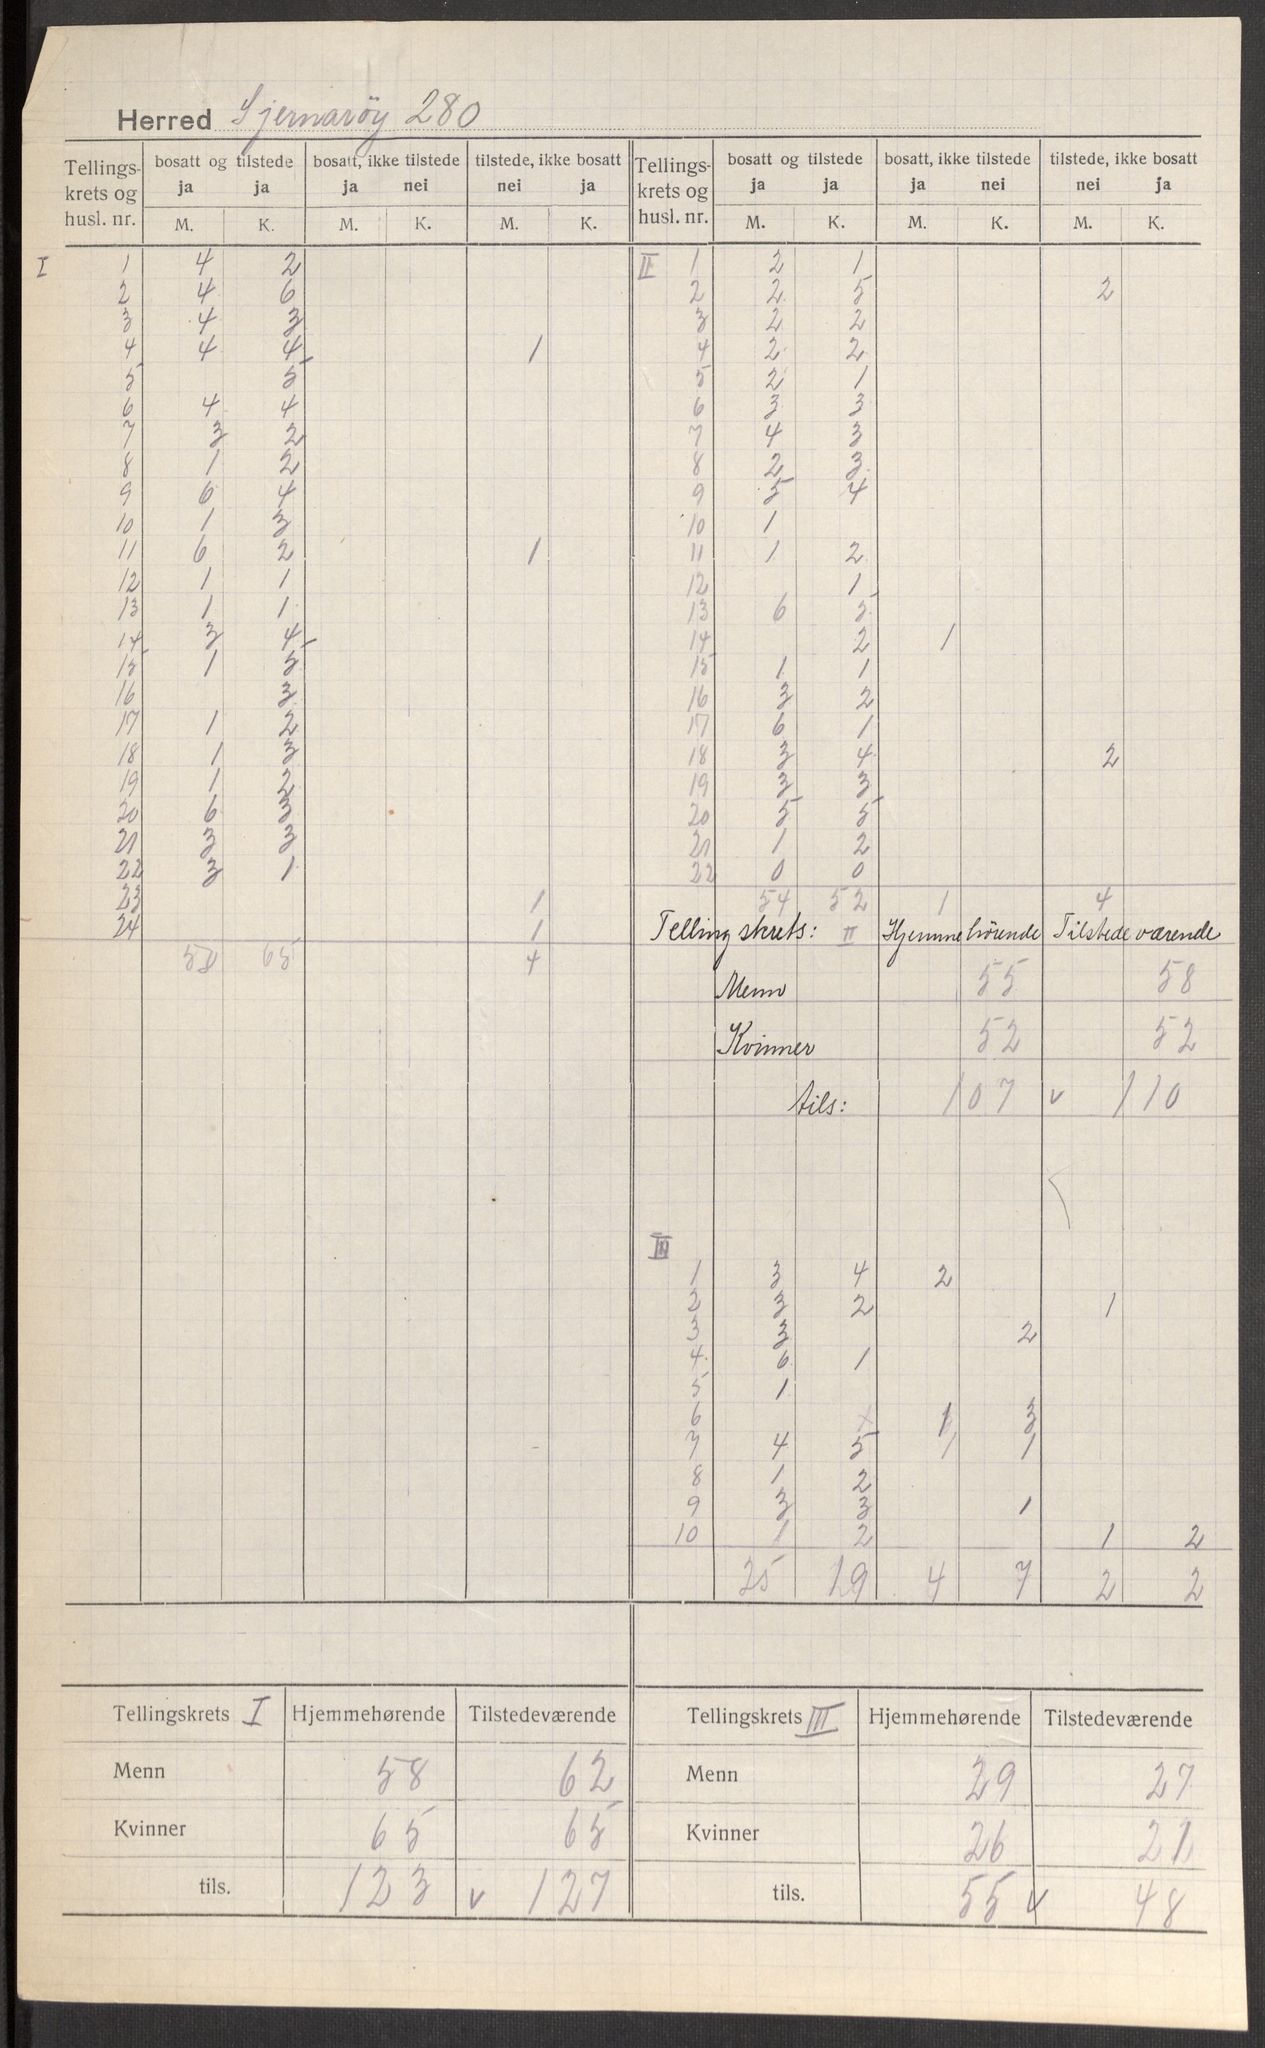 Herred Sjernarøy 280
Tellings- krets og husl. nr. | bosatt og tilstede ja ja M. K. | bosatt, ikke tilstede ja nei M. K. | tilstede, ikke bosatt nei ja M. K. | Tellings- krets og husl. nr. | bosatt og tilstede ja ja M. K. | bosatt, ikke tilstede ja nei M. K. | tilstede, ikke bosatt nei ja M. K.
I
1 4 2
2 4 6
3 4 3
4 4 4 1
5 5
6 4 4
7 3 2
8 1 2
9 6 4
10 1 3
11 6 2 1
12 1 1
13 1 1
14 3 4
15 1 5
16 3
17 1 2
18 1 3
19 1 2
20 6 3
21 3 3
22 3 1
23 1
24 1
58 65 4
II
1 2 1
2 2 5 2
3 2 2
4 2 2
5 2 1
6 3 3
7 4 3
8 2 3
9 5 4
10 1
11 1 2
12 1
13 6 5
14 2 1
15 1 1
16 3 2
17 6 1
18 3 4 2
19 3 3
20 5 5
21 1 2
22 0 0
54 52 1 4
Tellingskrets: II Hjemmehörende Tilstedeværende
Menn 55 58
Kvinner 52 52
tils: 107 v 110
III
1 3 4 2
2 3 2 1
3 3 2
4 6 1
5 1
6 x 1 3
7 4 5 1 1
8 1 2
9 3 3 1
10 1 2 1 2
25 19 4 7 2 2
Tellingskrets I Hjemmehørende Tilstedeværende
Menn 58 62
Kvinner 65 65
tils. 123 v 127
Tellingskrets III Hjemmehørende Tilstedeværende
Menn 29 27
Kvinner 26 21
tils. 55 v 48